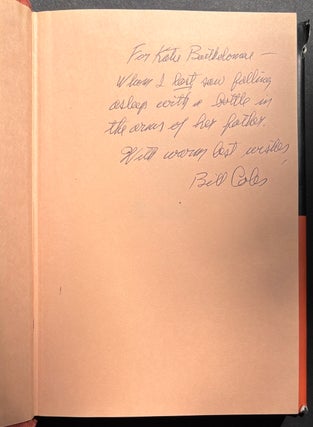 For Katie Bartholomae —
Whom I last saw falling
asleep with a bottle in
the arms of her father.
With warm best wishes,
Bill Coles